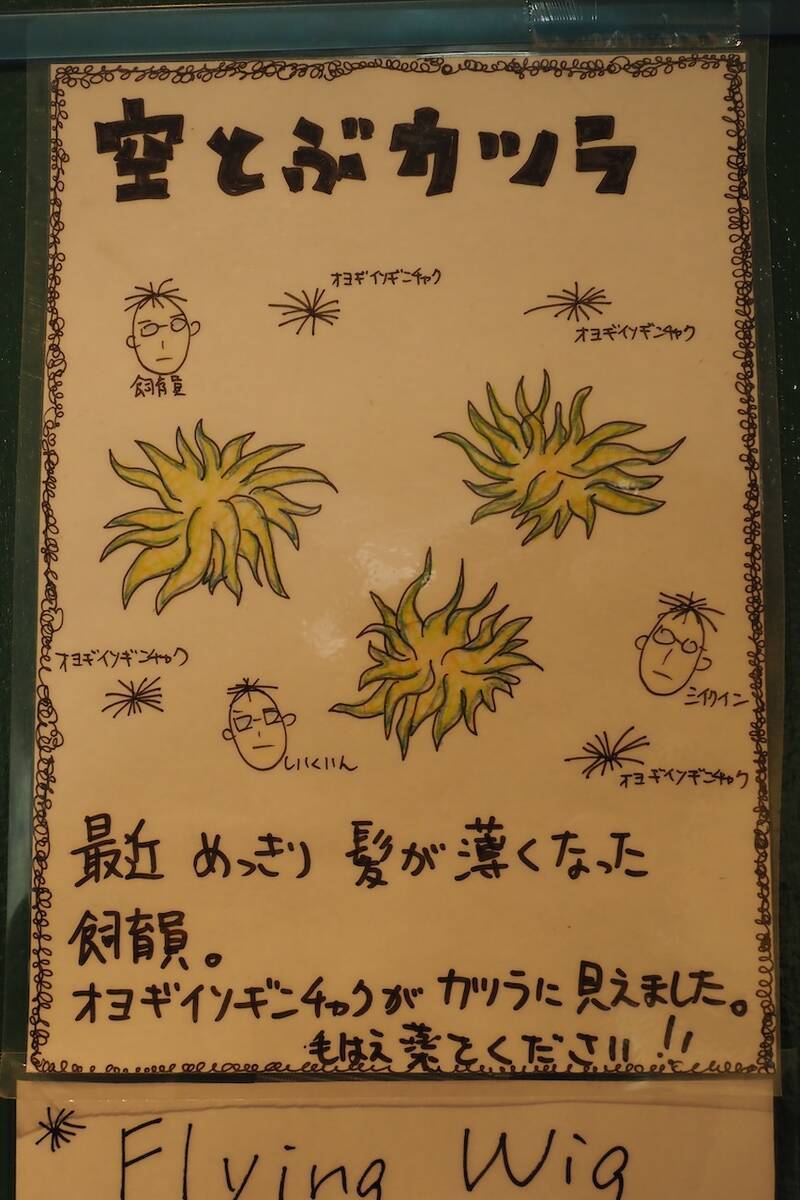 空とぶカツラ
オヨギイソギンチャク
オヨギイソギンチャク
飼育員
オヨギイソギンチャク
しいくいん
シイクイン
オヨギイソギンチャク
最近 めっきり 髪が薄くなった
飼育員。
オヨギイソギンチャクが カツラに見えました。
毛はえ薬をください!!
Flying Wig